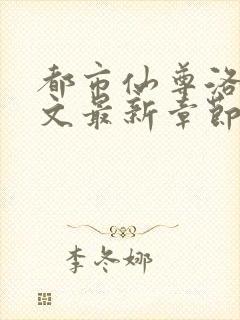 都市仙尊洛
文最新章节
李冬娜